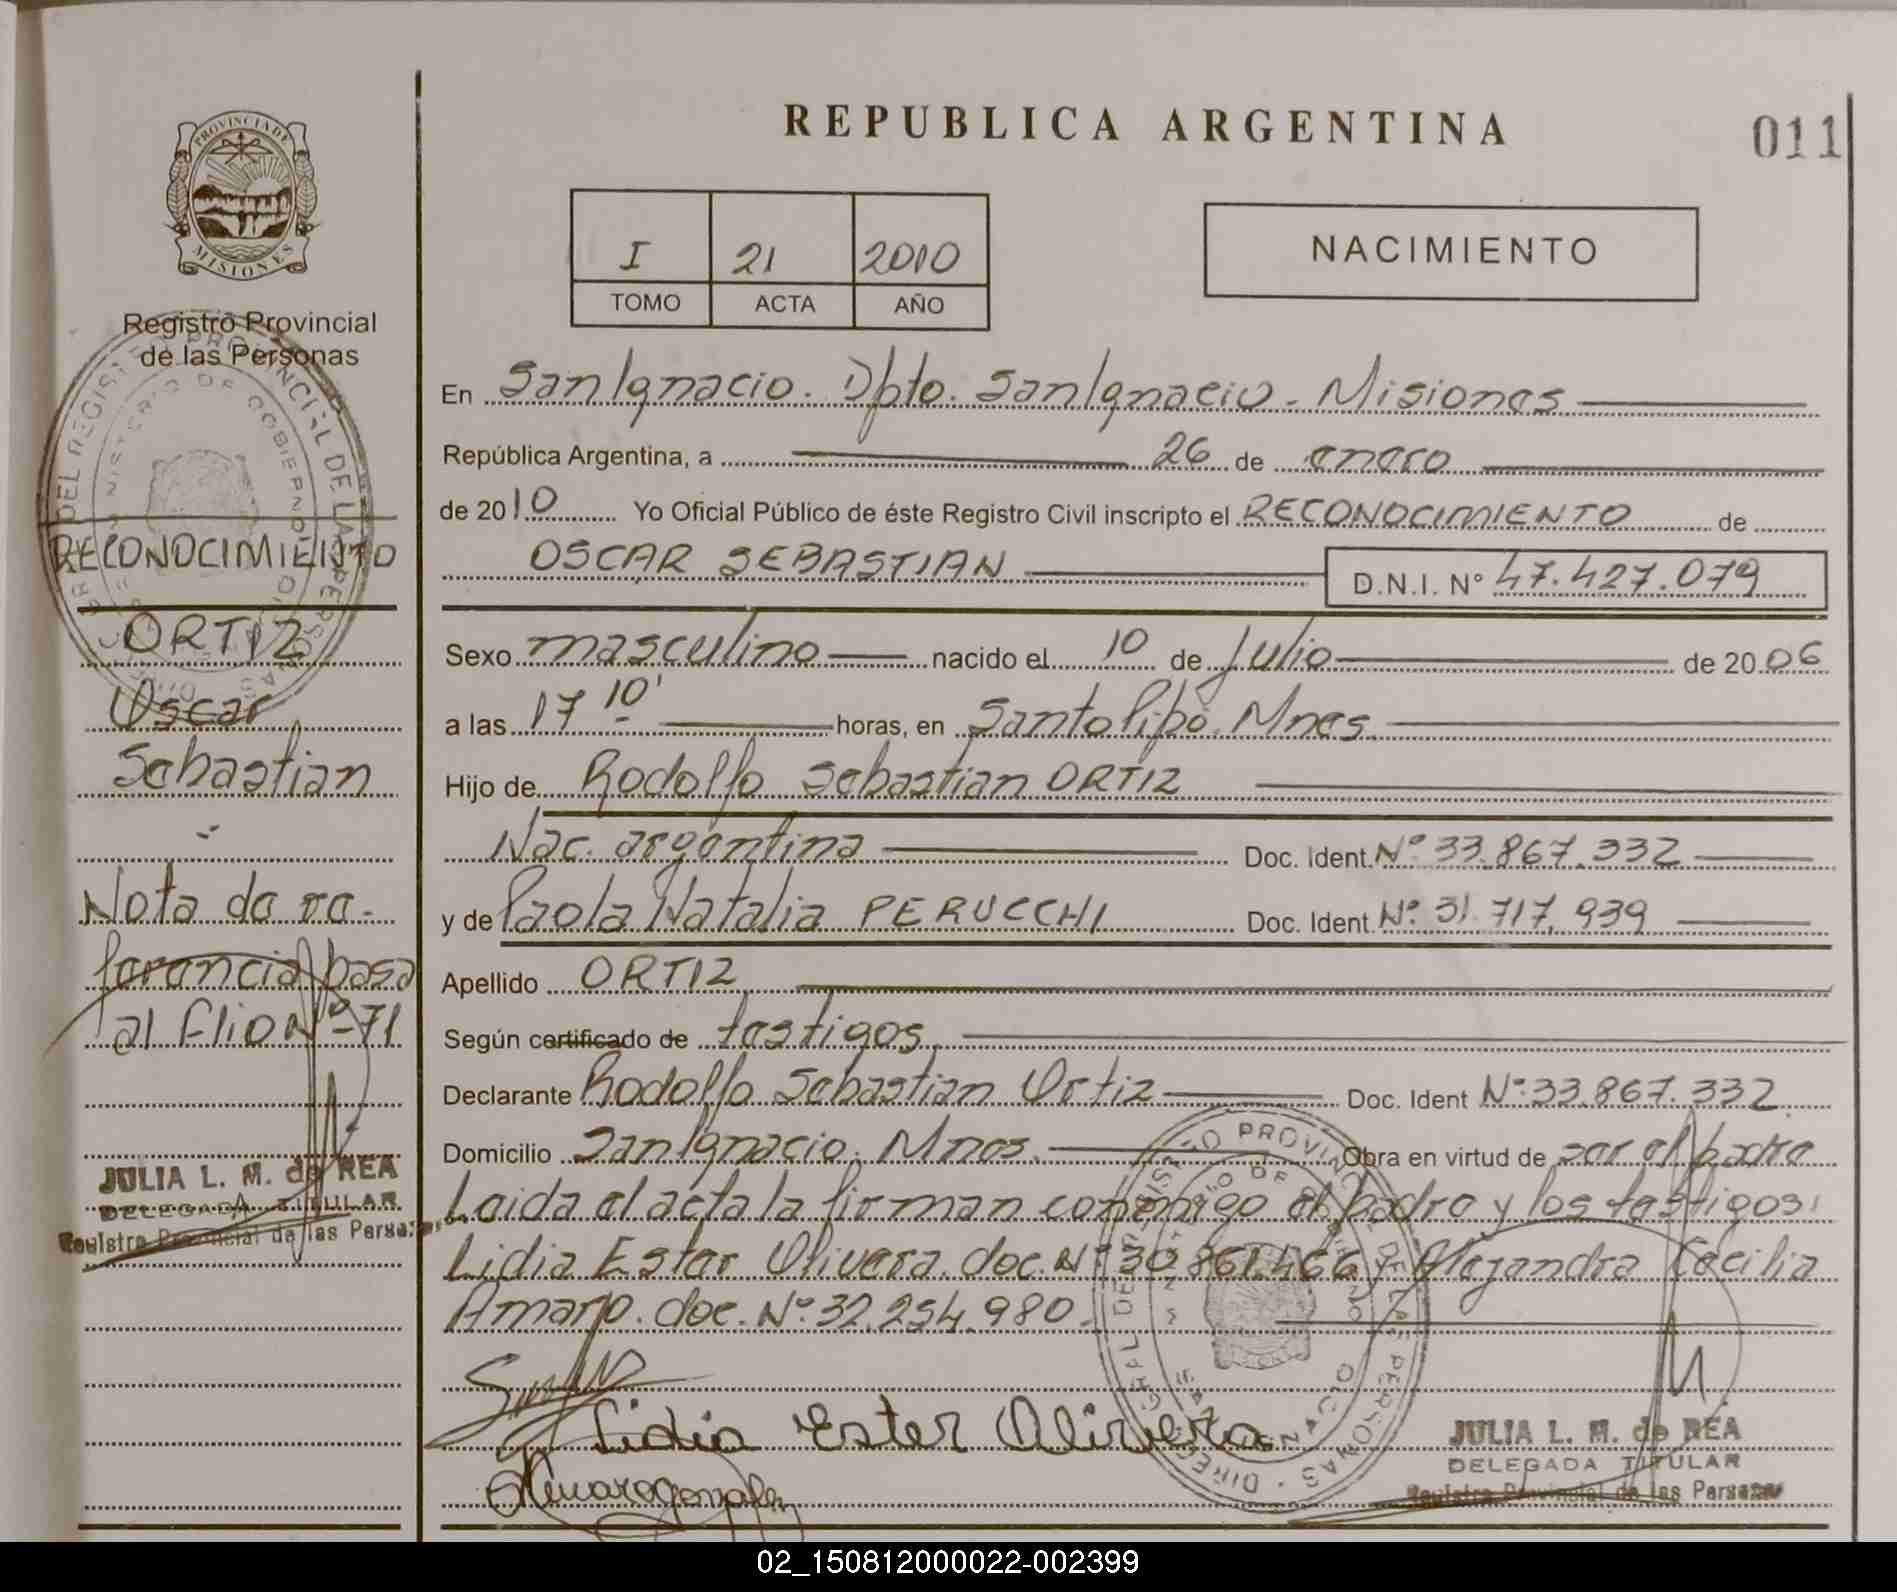 PROVINCIA DE
MISIONES
Registro Provincial
de las Personas
RECONOCIMIENTO
ORTIZ
Oscar
Sebastian
Nota de re-
ferencia pasa
al flio Nº 71
JULIA L. M. de REA
DELEGADA TITULAR
Registro Provincial de las Personas
REPUBLICA ARGENTINA
011
I 21 2010
TOMO ACTA AÑO
NACIMIENTO
En San Ignacio. Dpto. San Ignacio. Misiones
República Argentina, a 26 de enero
de 2010 Yo Oficial Público de éste Registro Civil inscripto el RECONOCIMIENTO de
OSCAR SEBASTIAN D.N.I. Nº 47.427.079
Sexo masculino nacido el 10 de Julio de 2006
a las 17 10' horas, en Santo Pipó. Mnes.
Hijo de Rodolfo Sebastian ORTIZ
Nac. argentina Doc. Ident. Nº 33.867.332
y de Paola Natalia PERUCCHI Doc. Ident Nº 31.717.939
Apellido ORTIZ
Según certificado de testigos
Declarante Rodolfo Sebastian Ortiz Doc. Ident Nº 33.867.332
Domicilio San Ignacio. Mnes. Obra en virtud de ser el padre
Leida el acta la firman conmigo el padre y los testigos:
Lidia Ester Olivera. doc. Nº 30.861.466 y Alejandra Cecilia
Amaro. doc. Nº 32.254.980.
Lidia Ester Olivera
JULIA L. M. de REA
DELEGADA TITULAR
Registro Provincial de las Personas
02_150812000022-002399